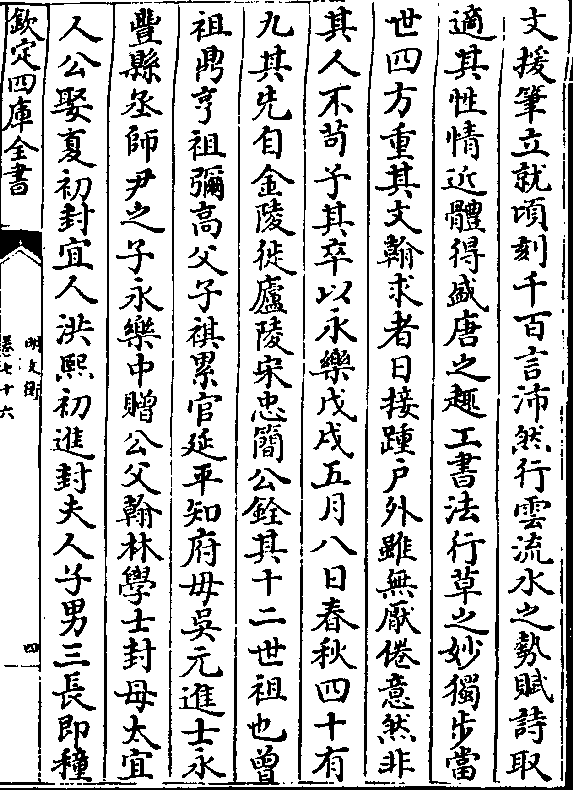 文援筆立就頃刻千百言沛然行雲流水之勢賦詩取
適其性情近體得盛唐之趣工書法行草之妙獨步當
世四方重其文翰求者日接踵户外雖無厭倦意然非
其人不苟予其卒以永樂戊戌五月八日春秋四十有
九其先自金陵徙廬陵宋忠簡公銓其十二世祖也曾
祖鼎亨祖彌高父子祺累官延平知府母吳元進士永
豐縣丞師尹之子永樂中贈公父翰林學士封母太宜
人公娶夏初封宜人洪熙初進封夫人子男三長即穜
欽定四庫全書
明文衡
卷七十六
四